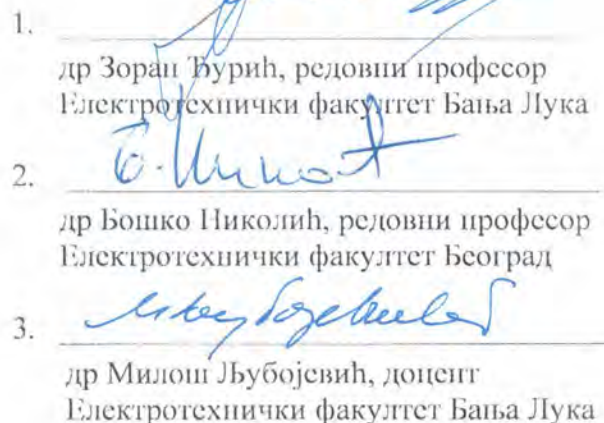 1.
др Зоран Ђурић, редовни професор
Електротехнички факултет Бања Лука
2.
др Бошко Николић, редовни професор
Електротехнички факултет Београд
3.
др Милош Љубојевић, доцент
Електротехнички факултет Бања Лука